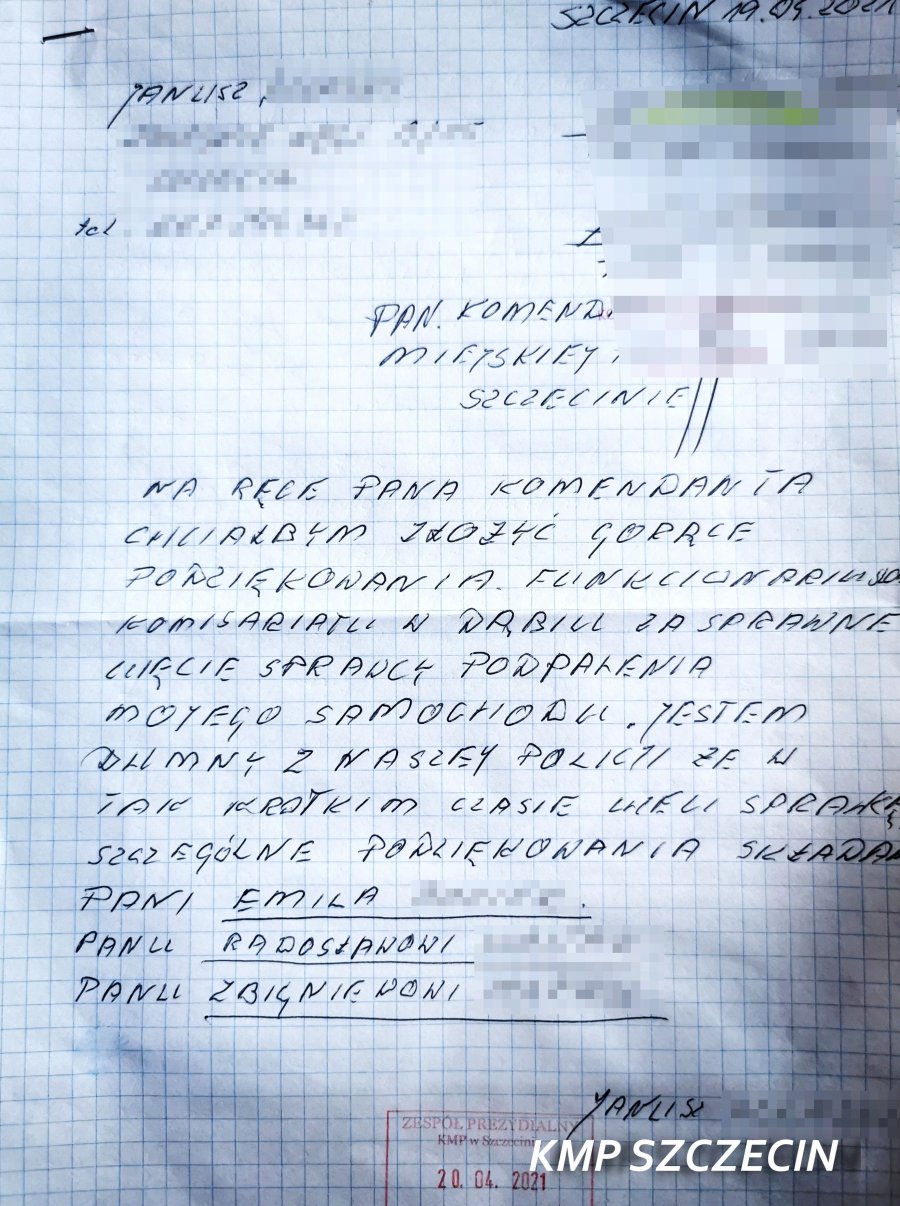 SZCZECIN 19.04.2021
JANUSZ
tel
PAN. KOMEND
MIEJSKIEJ
SZCZECINIE
NA RĘCE PANA KOMENDANTA
CHCIAŁBYM ZŁOŻYĆ GORĄCE
PODZIĘKOWANIA. FUNKCIONARIUSZO
KOMISARIATU W DĄBIU ZA SPRAWNE
UIĘCIE SPRAWCY PODPALENIA
MOJEGO SAMOCHODU. JESTEM
DUMNY Z NASZEJ POLICJI ŻE W
TAK KRÓTKIM CZASIE UIELI SPRAWCĘ
SZCZEGÓLNE PODZIĘKOWANIA SKŁADAM
PANI EMILA
PANU RADOSŁAWOWI
PANU ZBIGNIEWOWI
JANUSZ
ZESPÓŁ PREZYDIALNY
KMP w Szczecinie
KMP SZCZECIN
20. 04. 2021